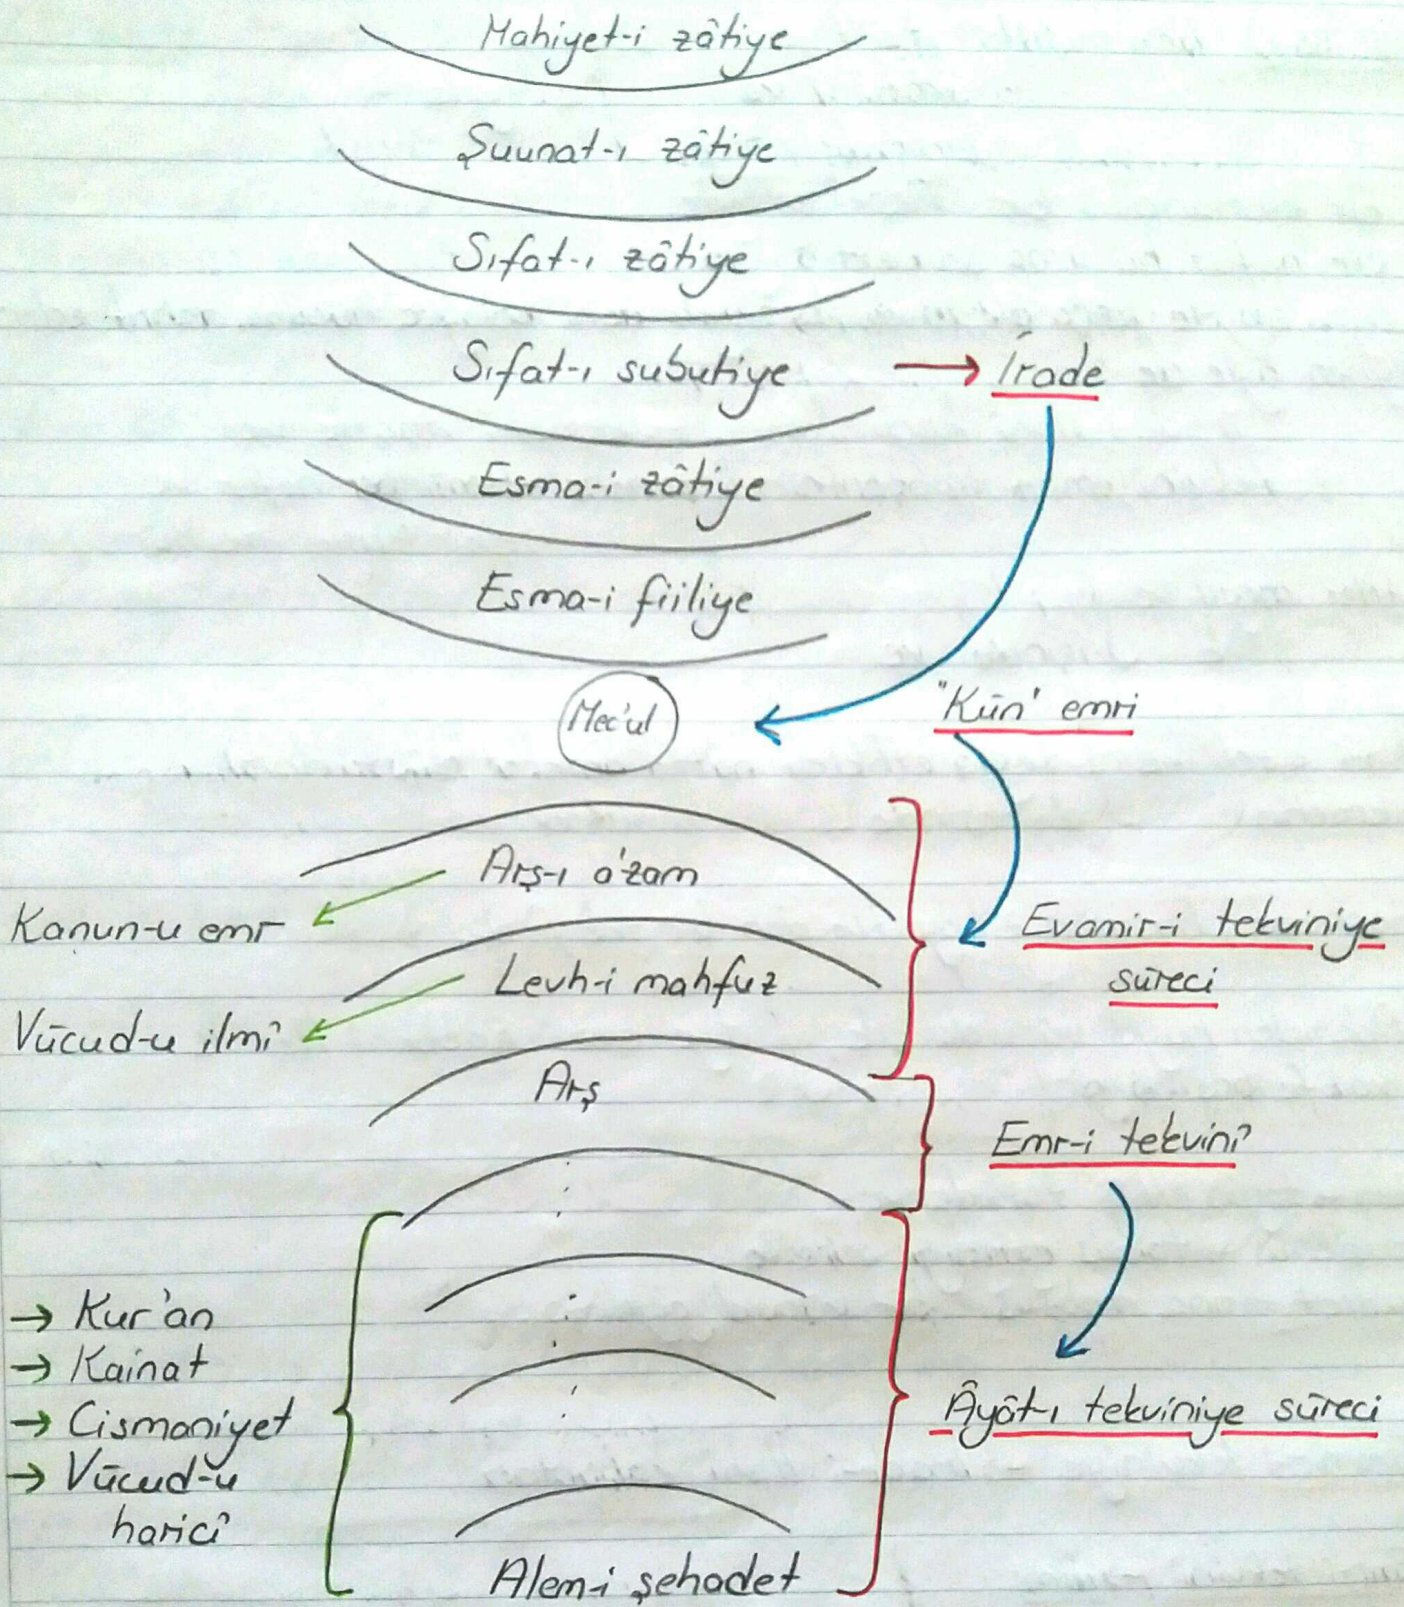 Mahiyet-i zâtiye
Şuunat-ı zâtiye
Sıfat-ı zâtiye
Sıfat-ı subutiye → İrade
Esma-i zâtiye
Esma-i fiiliye
Mec'ul
"Kün' emri
Arş-ı a'zam
Kanun-u emr
Evamir-i tekviniye
süreci
Levh-i mahfuz
Vücud-u ilmî
Arş
Emr-i tekvinî
→ Kur'an
→ Kainat
→ Cismaniyet
→ Vücud-u
haricî
Âyât-ı tekviniye süreci
Alem-i şehadet